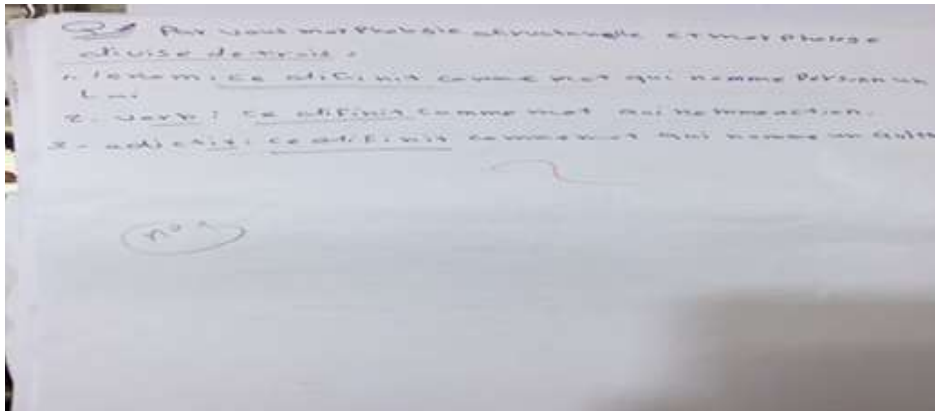 Par vous morphologie structurelle et morphologe
divise de trois :
1. le nom : ce difinit comme mot qui nomme Person un
2. verb : ce difinit comme mot qui nomme action.
3 - adjectif : ce difinit comme mot qui nomme un